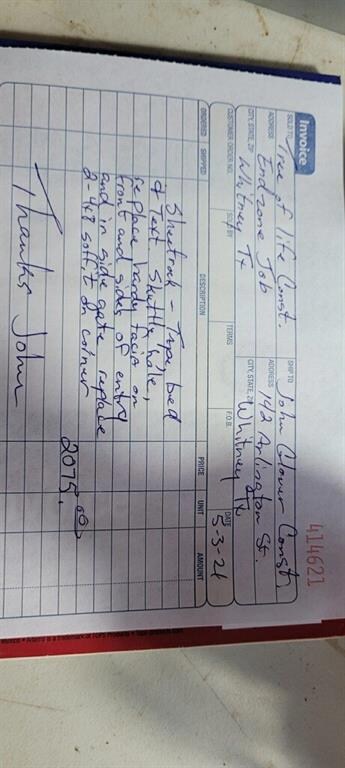 Invoice
414621
SOLD TO Tree of life Const.
SHIP TO John Glover Const.
ADDRESS Endzone Job
ADDRESS 112 Arlington St.
CITY, STATE, ZIP Whitney Tx
CITY, STATE, ZIP Whitney Tx
CUSTOMER ORDER NO. SOLD BY TERMS F.O.B. DATE 5-3-21
ORDERED SHIPPED DESCRIPTION PRICE UNIT AMOUNT
Sheetrock - Tape, bed
& Text Shuttle hole,
replace hardy facia on
front and sides of entry
and in side gate replace
2-4x8 soffit on corner
2075.00
Thanks John